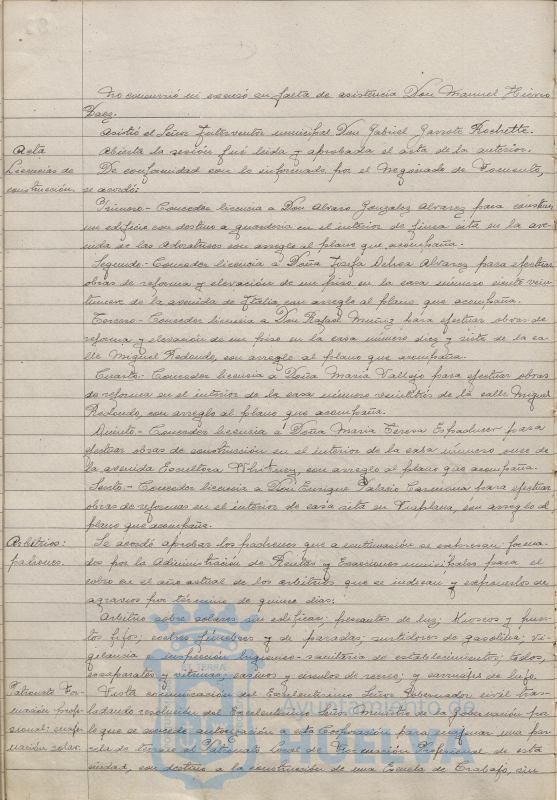 No concurrió ni excusó su falta de asistencia Don Manuel Hierro
Daez.
Asistió el Señor Interventor municipal Don Gabriel Garrote Rochette.
Acta
Abierta la sesión fué leida y aprobada el acta de la anterior.
Licencias de
construcción.
De conformidad con lo informado por el Negociado de Fomento,
se acordó:
Primero.- Conceder licencia a Don Alvaro Gonzalez Alvarez para construir
un edificio con destino a guardería en el interior de finca sita en la ave-
nida de las Adoratrices con arreglo al plano que acompaña.
Segundo.- Conceder licencia a Doña Josefa Ochoa Alvarez para efectuar
obras de reforma y elevación de un piso en la casa número ciento vein-
tinueve de la avenida de Italia con arreglo al plano que acompaña.
Tercero.- Conceder licencia a Don Rafael Muñiz para efectuar obras de
reforma y elevación de un piso en la casa número diez y siete de la ca-
lle Miguel Redondo, con arreglo al plano que acompaña.
Cuarto.- Conceder licencia a Doña Maria Vallejo para efectuar obras
de reforma en el interior de la casa número veintitrés de la calle Miguel
Redondo, con arreglo al plano que acompaña.
Quinto.- Conceder licencia a Doña Maria Teresa para
efectuar obras de construcción en el interior de la casa número once de
la avenida Escultora Whitney, con arreglo al plano que acompaña.
Sexto.- Conceder licencia a Don Enrique Palacio para efectuar
obras de reformas en el interior de casa sita en Viaplana, con arreglo al
plano que acompaña.
Arbitrios:
padrones.
Se acordó aprobar los padrones que a continuación se expresan forma-
dos por la Administración de Rentas y Exacciones municipales para el
cobro en el año actual de los arbitrios que se indican y exponerlos de
agravios por término de quince días:
Arbitrio sobre solares sin edificar; pescantes de luz; Kioscos y pues-
tos fijos; coches fúnebres y de paradas; surtidores de gasolina; vi-
gilancia e inspección higienico-sanitaria de establecimientos; toldos,
escaparates y vitrinas; casinos y circulos de recreo; y carruajes de lujo.
Patronato For-
mación profe-
sional: enage-
nación solar.
Vista comunicación del Excelentísimo Señor Gobernador civil tras-
ladando resolución del Excelentísimo Señor Ministro de la Gobernación por
la que se concede autorización a esta Corporación para enagenar una par-
cela de terreno al Patronato Local de Formación Profesional de esta
ciudad, con destino a la construcción de una Escuela de Trabajo, sin
Ayuntamiento de
HUELVA